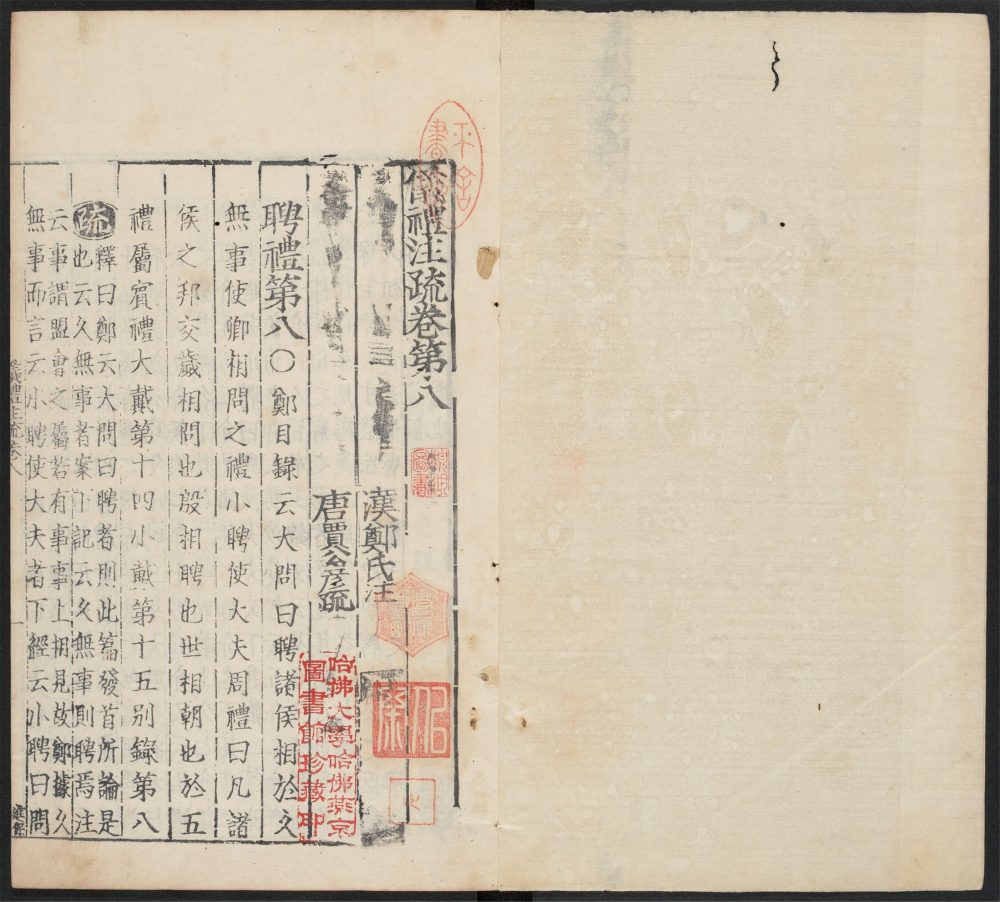 儀禮注疏卷第八
漢鄭氏注
唐賈公彥疏
聘禮第八〇鄭目録云大問曰聘諸侯相於久
無事使卿相問之禮小聘使大夫周禮曰凡諸
侯之邦交歲相問也殷相聘也世相朝也於五
禮屬賓禮大戴第十四小戴第十五别錄第八
疏釋曰鄭云大問曰聘者則此篇發首所論是
也云久無事者案下記云久無事則聘焉注
云事謂盟會之屬若有事事上相見故鄭據久
無事而言云小聘使大夫者下經云小聘曰問
儀禮注疏卷八
哈佛大學哈佛燕京
圖書館珍藏印